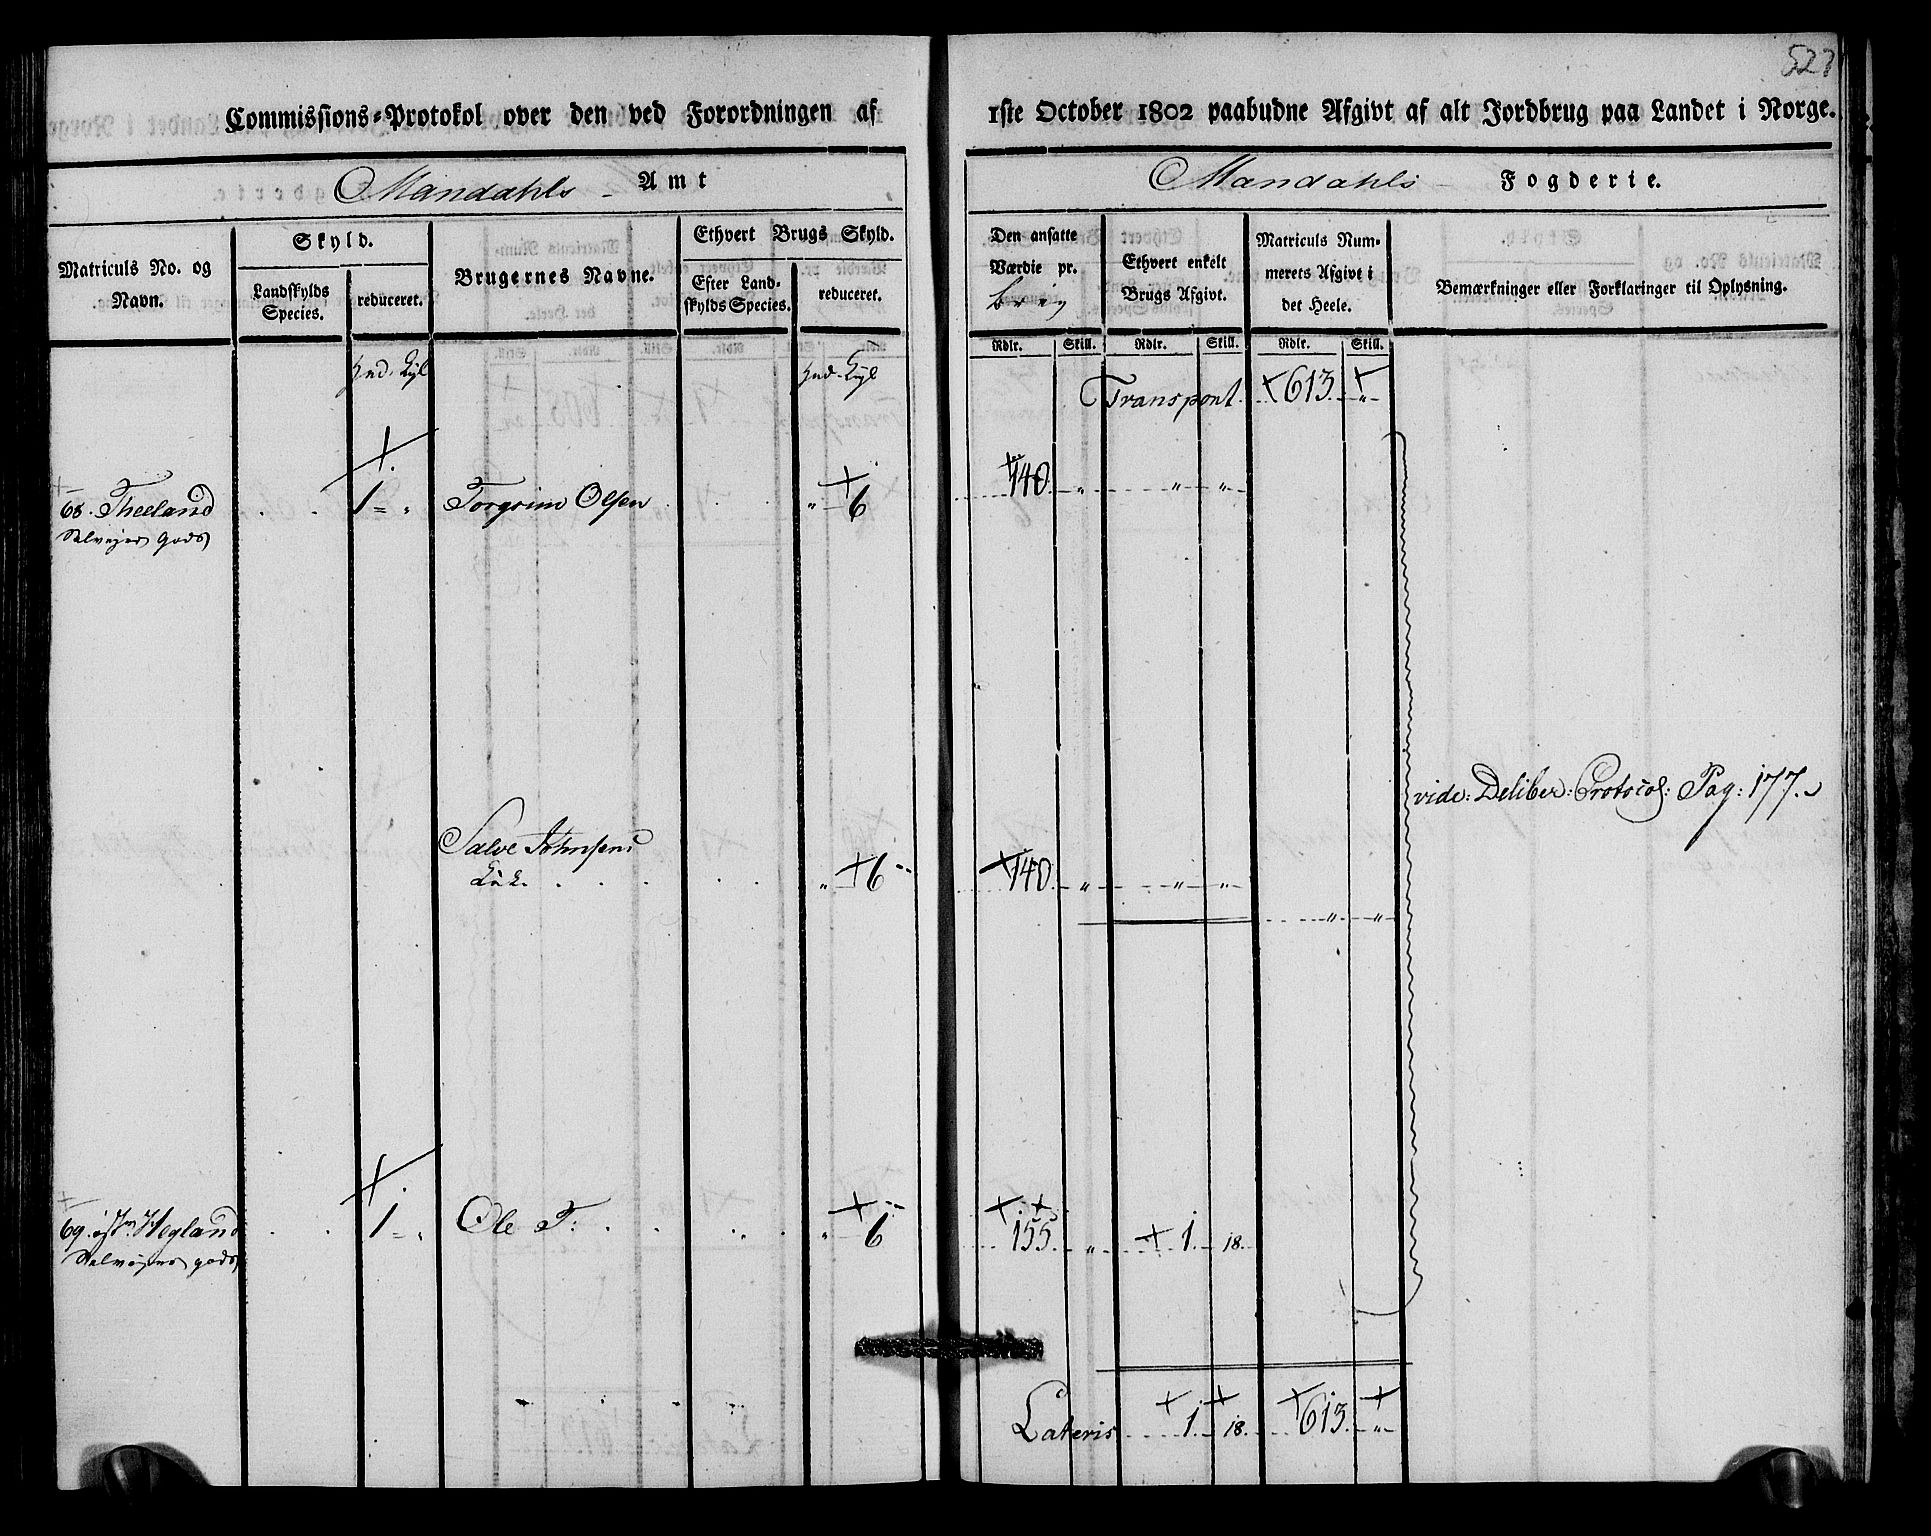 527
Commissions-Protokol over den ved Forordningen af 1ste October 1802 paabudne Afgivt af alt Jordbrug paa Landet i Norge.
Mandahls Amt
Mandahls Fogderie.
Matriculs No. og Navn.
Skyld.
Landskylds Species.
reduceret.
Brugernes Navne.
Ethvert Brugs Skyld.
Efter Landskylds Species.
reduceret.
Den ansatte Værdie pr.
Ethvert enkelt Brugs Afgivt.
Matriculs Nummerets Afgivt i det Heele.
Bemærkninger eller Forklaringer til Oplysning.
Rdlr. Skill. Rdlr. Skill. Rdlr. Skill.
Transport 613 "
68. Theeland 1 = " Torgrim Olsen " 6 140 " " "
Selvejer gods
vide: Deliber: Protocol: Pag: 177.
Salve Johnsens
" 6 140 " " "
" "
69. Hegland 1 = " Ole T: " 6 155 " 1 18.
Selvejer gods
Lateris 1 18. 613 "